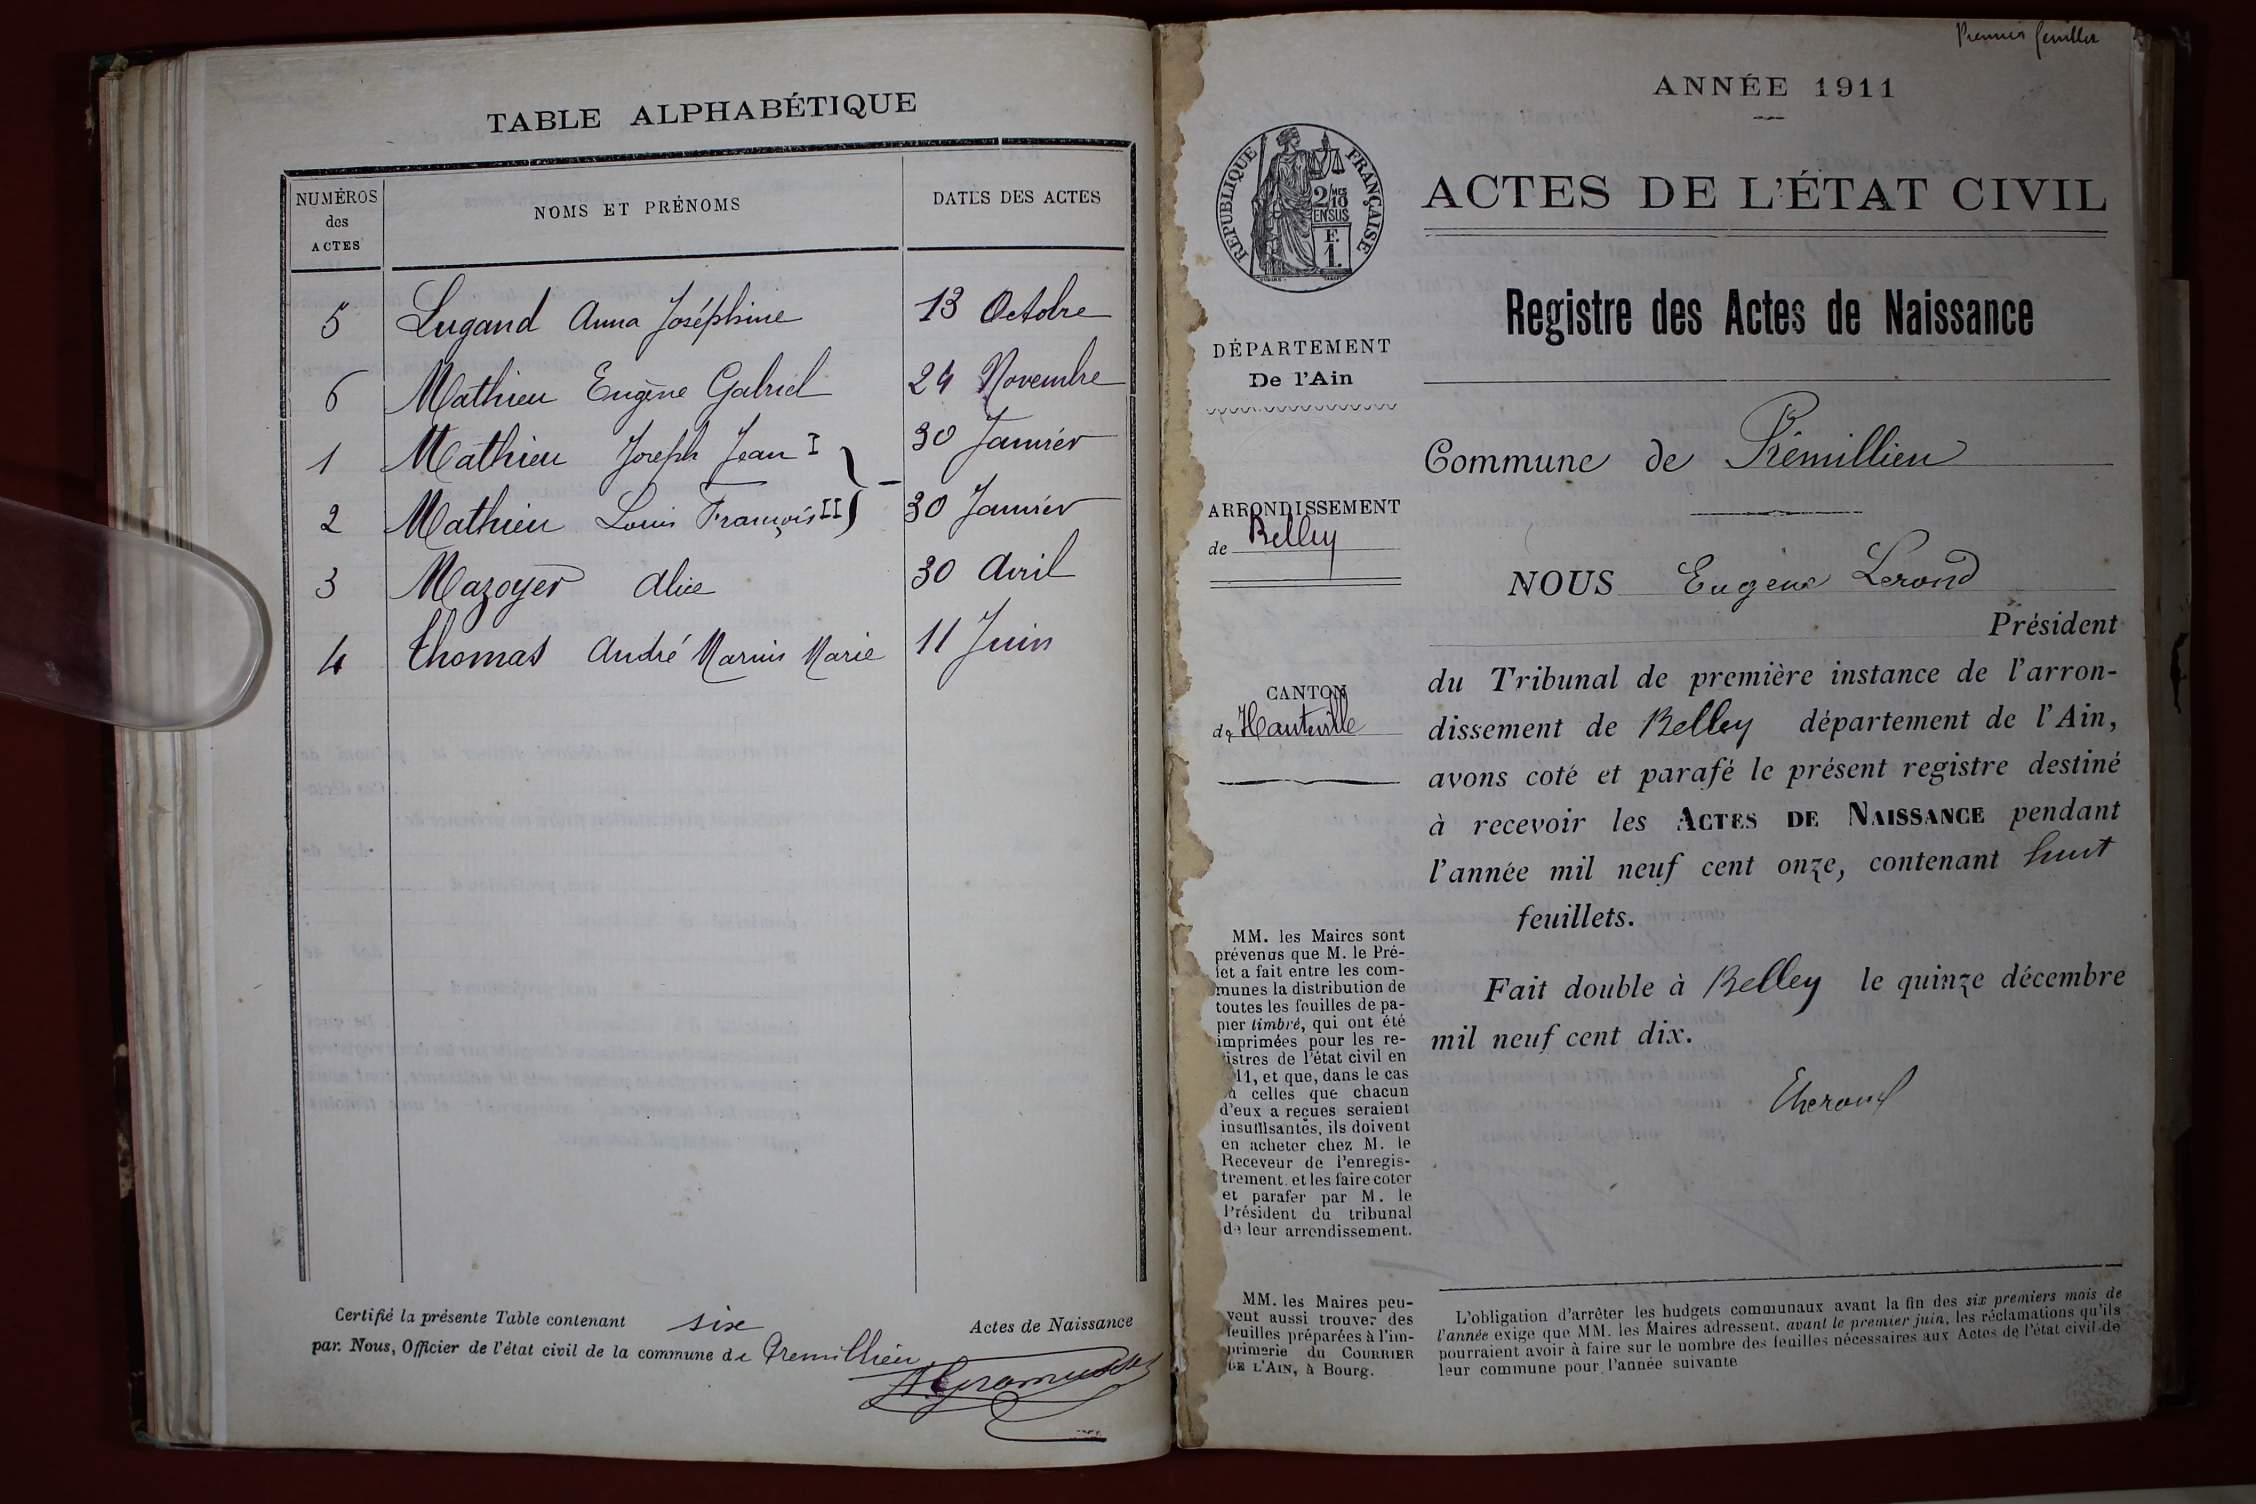 TABLE ALPHABÉTIQUE
NUMÉROS des ACTES
NOMS ET PRÉNOMS
DATES DES ACTES
5 Lugand Anna Joséphine 13 Octobre
6 Mathieu Eugène Gabriel 24 Novembre
1 Mathieu Joseph Jean I 30 Janvier
2 Mathieu Louis François II 30 Janvier
3 Mazoyer Alice 30 Avril
4 Thomas André Marius Marie 11 Juin
Certifié la présente Table contenant six Actes de Naissance
par Nous, Officier de l'état civil de la commune de Premillieu
Premier feuillet
ANNÉE 1911
RÉPUBLIQUE FRANÇAISE
2/10 MES
EN SUS
F.
1.
DÉPARTEMENT
De l'Ain
ARRONDISSEMENT
de Belley
CANTON
de Hauteville
MM. les Maires sont
prévenus que M. le Pré-
fet a fait entre les com-
munes la distribution de
toutes les feuilles de pa-
pier timbré, qui ont été
imprimées pour les re-
istres de l'état civil en
11, et que, dans le cas
celles que chacun
d'eux a reçues seraient
insuffisantes, ils doivent
en acheter chez M. le
Receveur de l'enregis-
trement. et les faire coter
et parafer par M. le
Président du tribunal
de leur arrondissement.
MM. les Maires peu-
vent aussi trouver des
feuilles préparées à l'im-
primerie du COURRIER
DE L'AIN, à Bourg.
ACTES DE L'ÉTAT CIVIL
Registre des Actes de Naissance
Commune de Prémillieu
NOUS Eugène Lerond
Président
du Tribunal de première instance de l'arron-
dissement de Belley département de l'Ain,
avons coté et parafé le présent registre destiné
à recevoir les ACTES DE NAISSANCE pendant
l'année mil neuf cent onze, contenant huit
feuillets.
Fait double à Belley le quinze décembre
mil neuf cent dix.
L'obligation d'arrêter les budgets communaux avant la fin des six premiers mois de
l'année exige que MM. les Maires adressent, avant le premier juin, les réclamations qu'ils
pourraient avoir à faire sur le nombre des feuilles nécessaires aux Actes de l'état civil de
leur commune pour l'année suivante